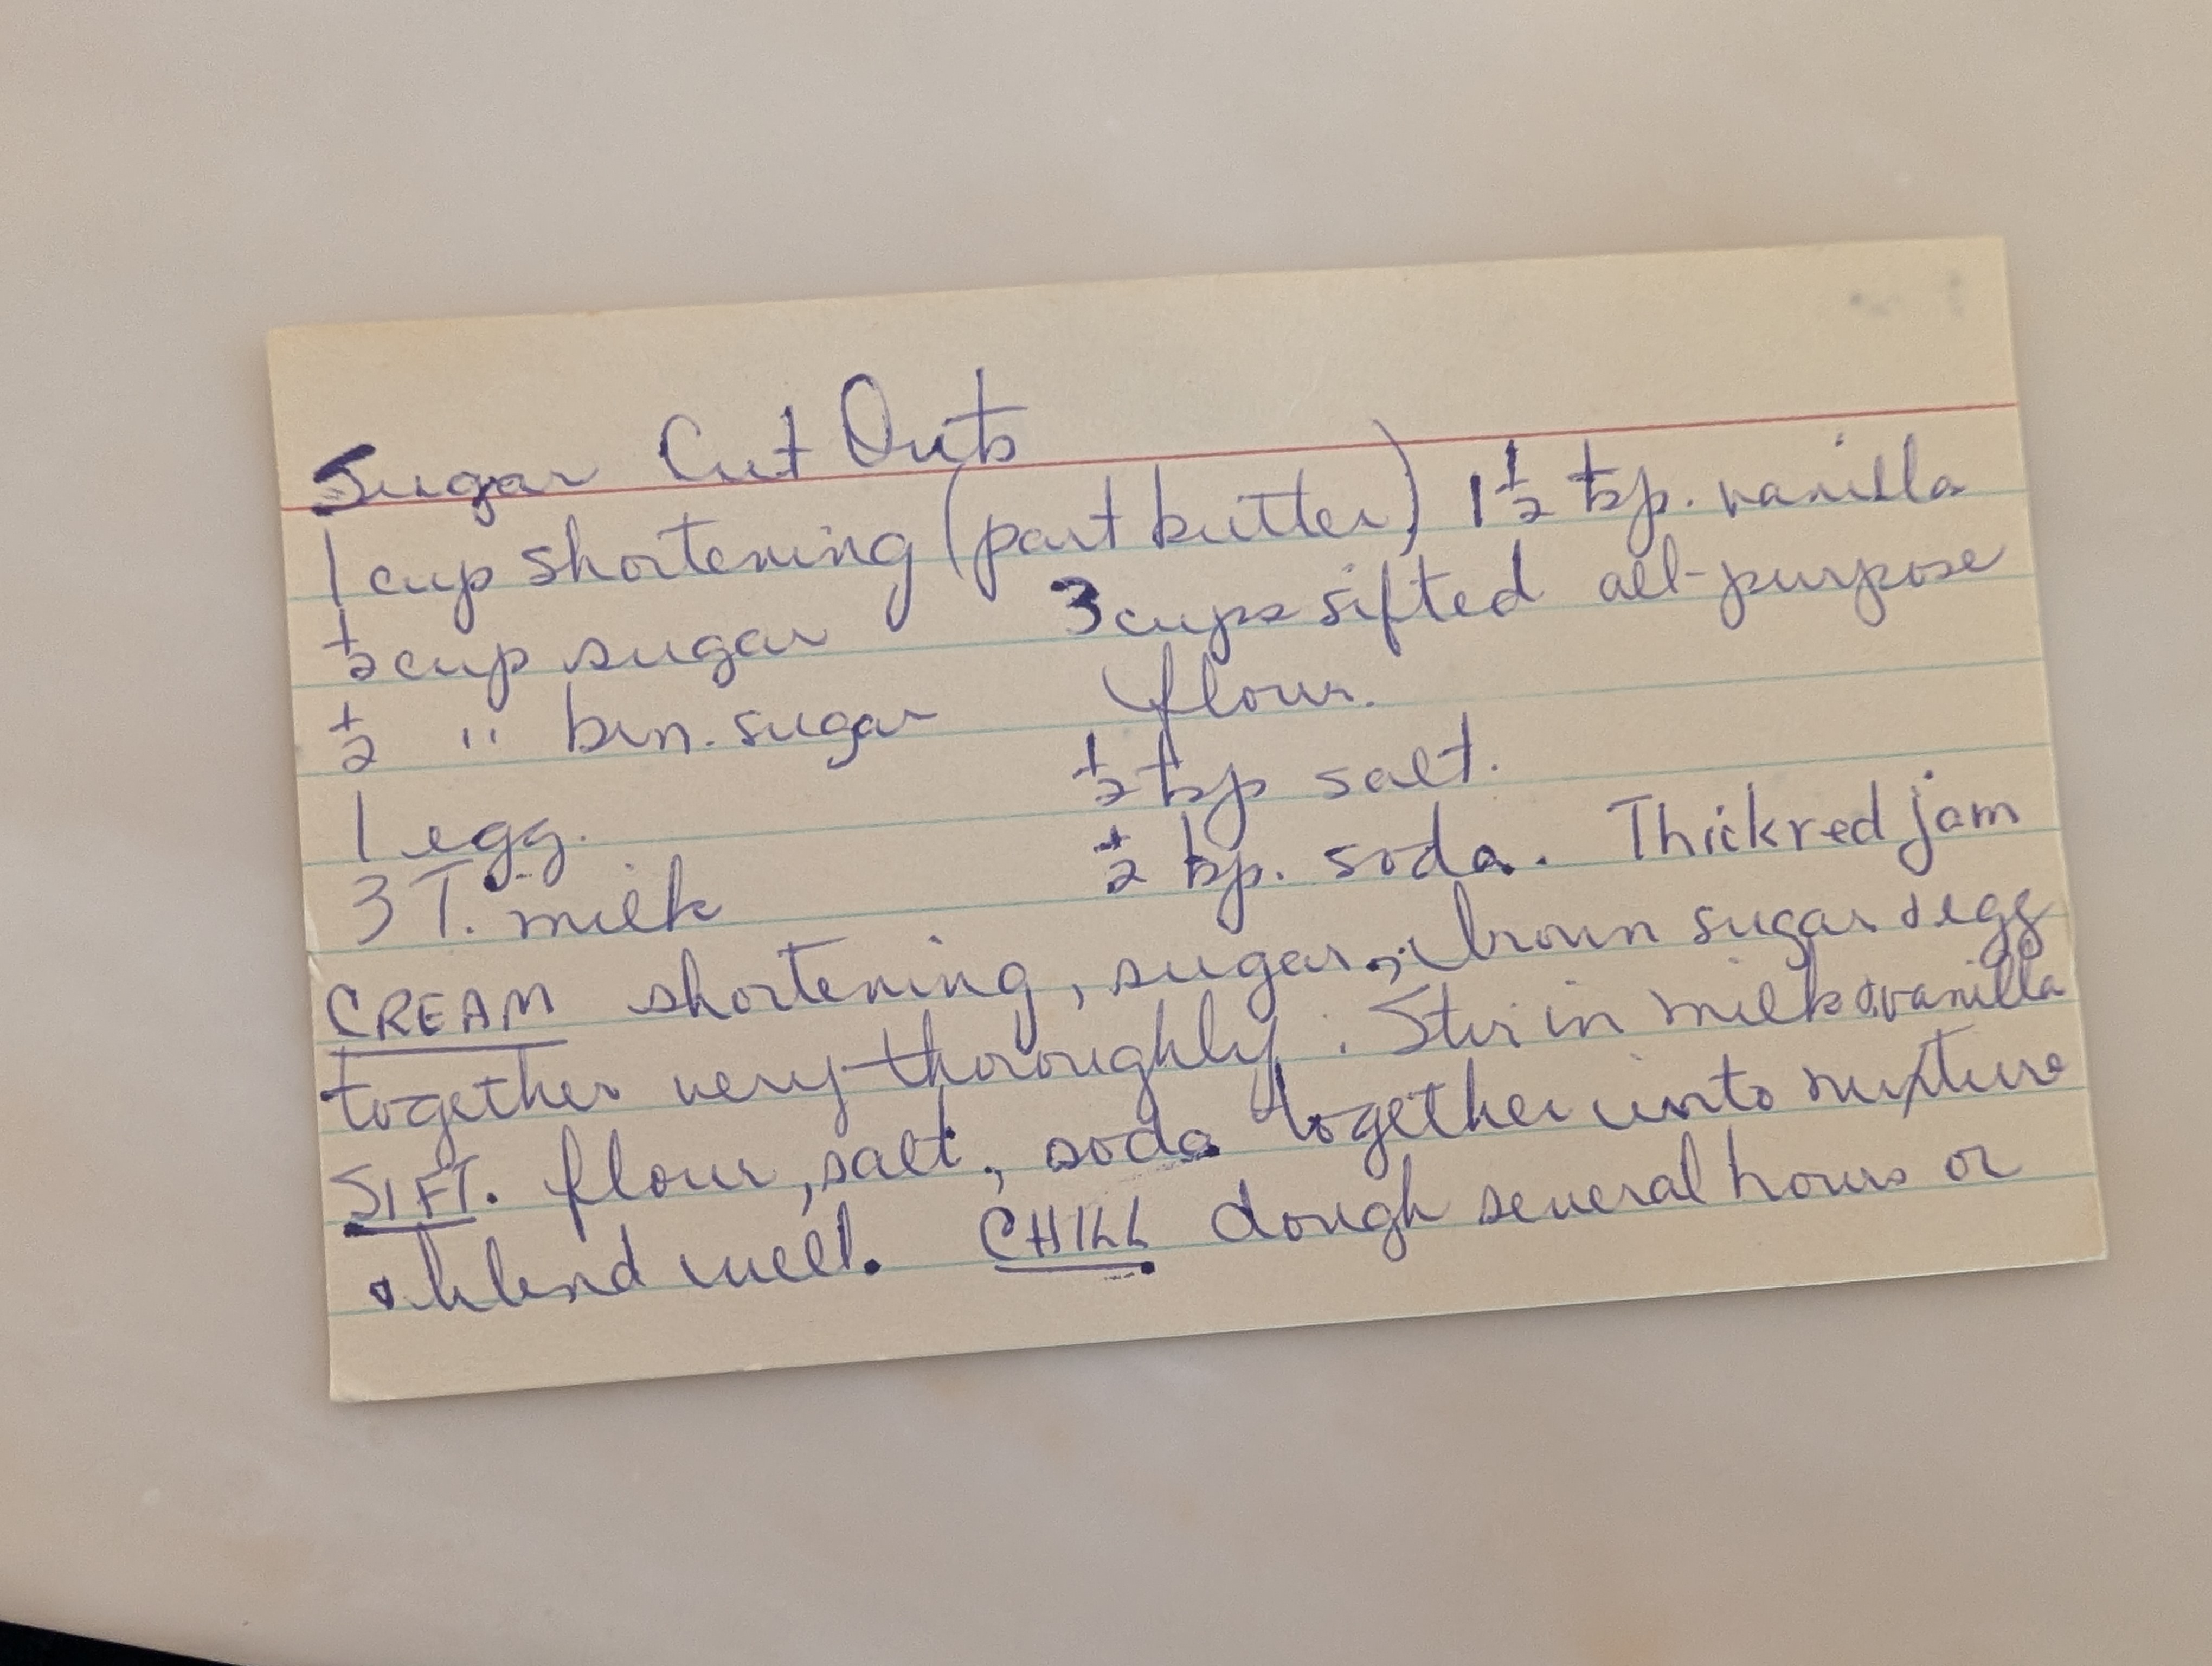 Sugar Cut Outs
1 cup shortening (part butter) 1 1/2 tsp. vanilla
1/2 cup sugar 3 cups sifted all-purpose
1/2 " brn. sugar flour.
1 egg. 1/2 tsp salt.
3 T. milk 1/2 tsp. soda. Thick red jam
CREAM shortening, sugar, brown sugar & egg
together very thoroughly. Stir in milk & vanilla
SIFT. flour, salt, soda together into mixture
& blend well. CHILL dough several hours or